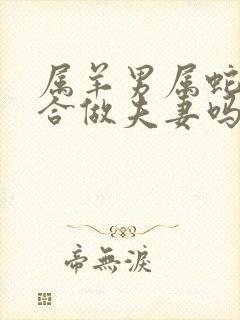 属羊男属蛇
合做夫妻吗
帝無淚